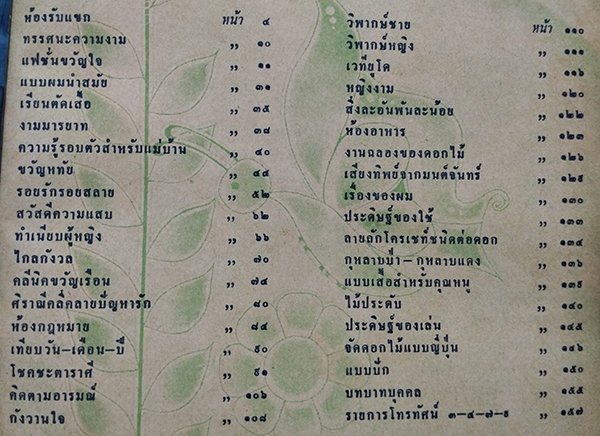 ห้องรับแขก หน้า ๔
ทรรศนะความงาม ,, ๑๐
แฟชั่นขวัญใจ ,, ๑๑
แบบผมนำสมัย ,, ๓๑
เรียนตัดเสื้อ ,, ๓๕
งามมารยาท ,, ๓๘
ความรู้รอบตัวสำหรับแม่บ้าน ,, ๔๐
ขวัญหทัย ,, ๔๔
รอยรักรอยสลาย ,, ๕๒
สวัสดีความแสบ ,, ๖๒
ทำเนียบผู้หญิง ,, ๖๖
ไกลกังวล ,, ๗๐
คลีนิคขวัญเรือน ,, ๗๔
ศิราณีคลี่คลายปัญหารัก ,, ๘๐
ห้องกฎหมาย ,, ๘๔
เทียบวัน-เดือน-ปี ,, ๙๐
โชคชะตาราศี ,, ๙๑
คิดตามอารมณ์ ,, ๑๐๖
กังวานใจ ,, ๑๐๘
วิพากษ์ชาย หน้า ๑๑๐
วิพากษ์หญิง ,, ๑๑๑
เวทียูโด ,, ๑๑๖
หญิงงาม ,, ๑๒๐
สิ่งละอันพันละน้อย ,, ๑๒๒
ห้องอาหาร ,, ๑๒๓
งานฉลองของดอกไม้ ,, ๑๒๖
เสียงทิพย์จากมนต์จันทร์ ,, ๑๒๙
เรื่องของผม ,, ๑๓๐
ประดิษฐ์ของใช้ ,, ๑๓๓
ลายถักโครเชท์ชนิดต่อดอก ,, ๑๓๔
กุหลาบป่า-กุหลาบแดง ,, ๑๓๖
แบบเสื้อสำหรับคุณหนู ,, ๑๓๙
ไม้ประดับ ,, ๑๔๐
ประดิษฐ์ของเล่น ,, ๑๔๕
จัดดอกไม้แบบญี่ปุ่น ,, ๑๔๖
แบบปัก ,, ๑๕๐
บทบาทบุคคล ,, ๑๕๕
รายการโทรทัศน์ ๓-๔-๗-๙ ,, ๑๕๗